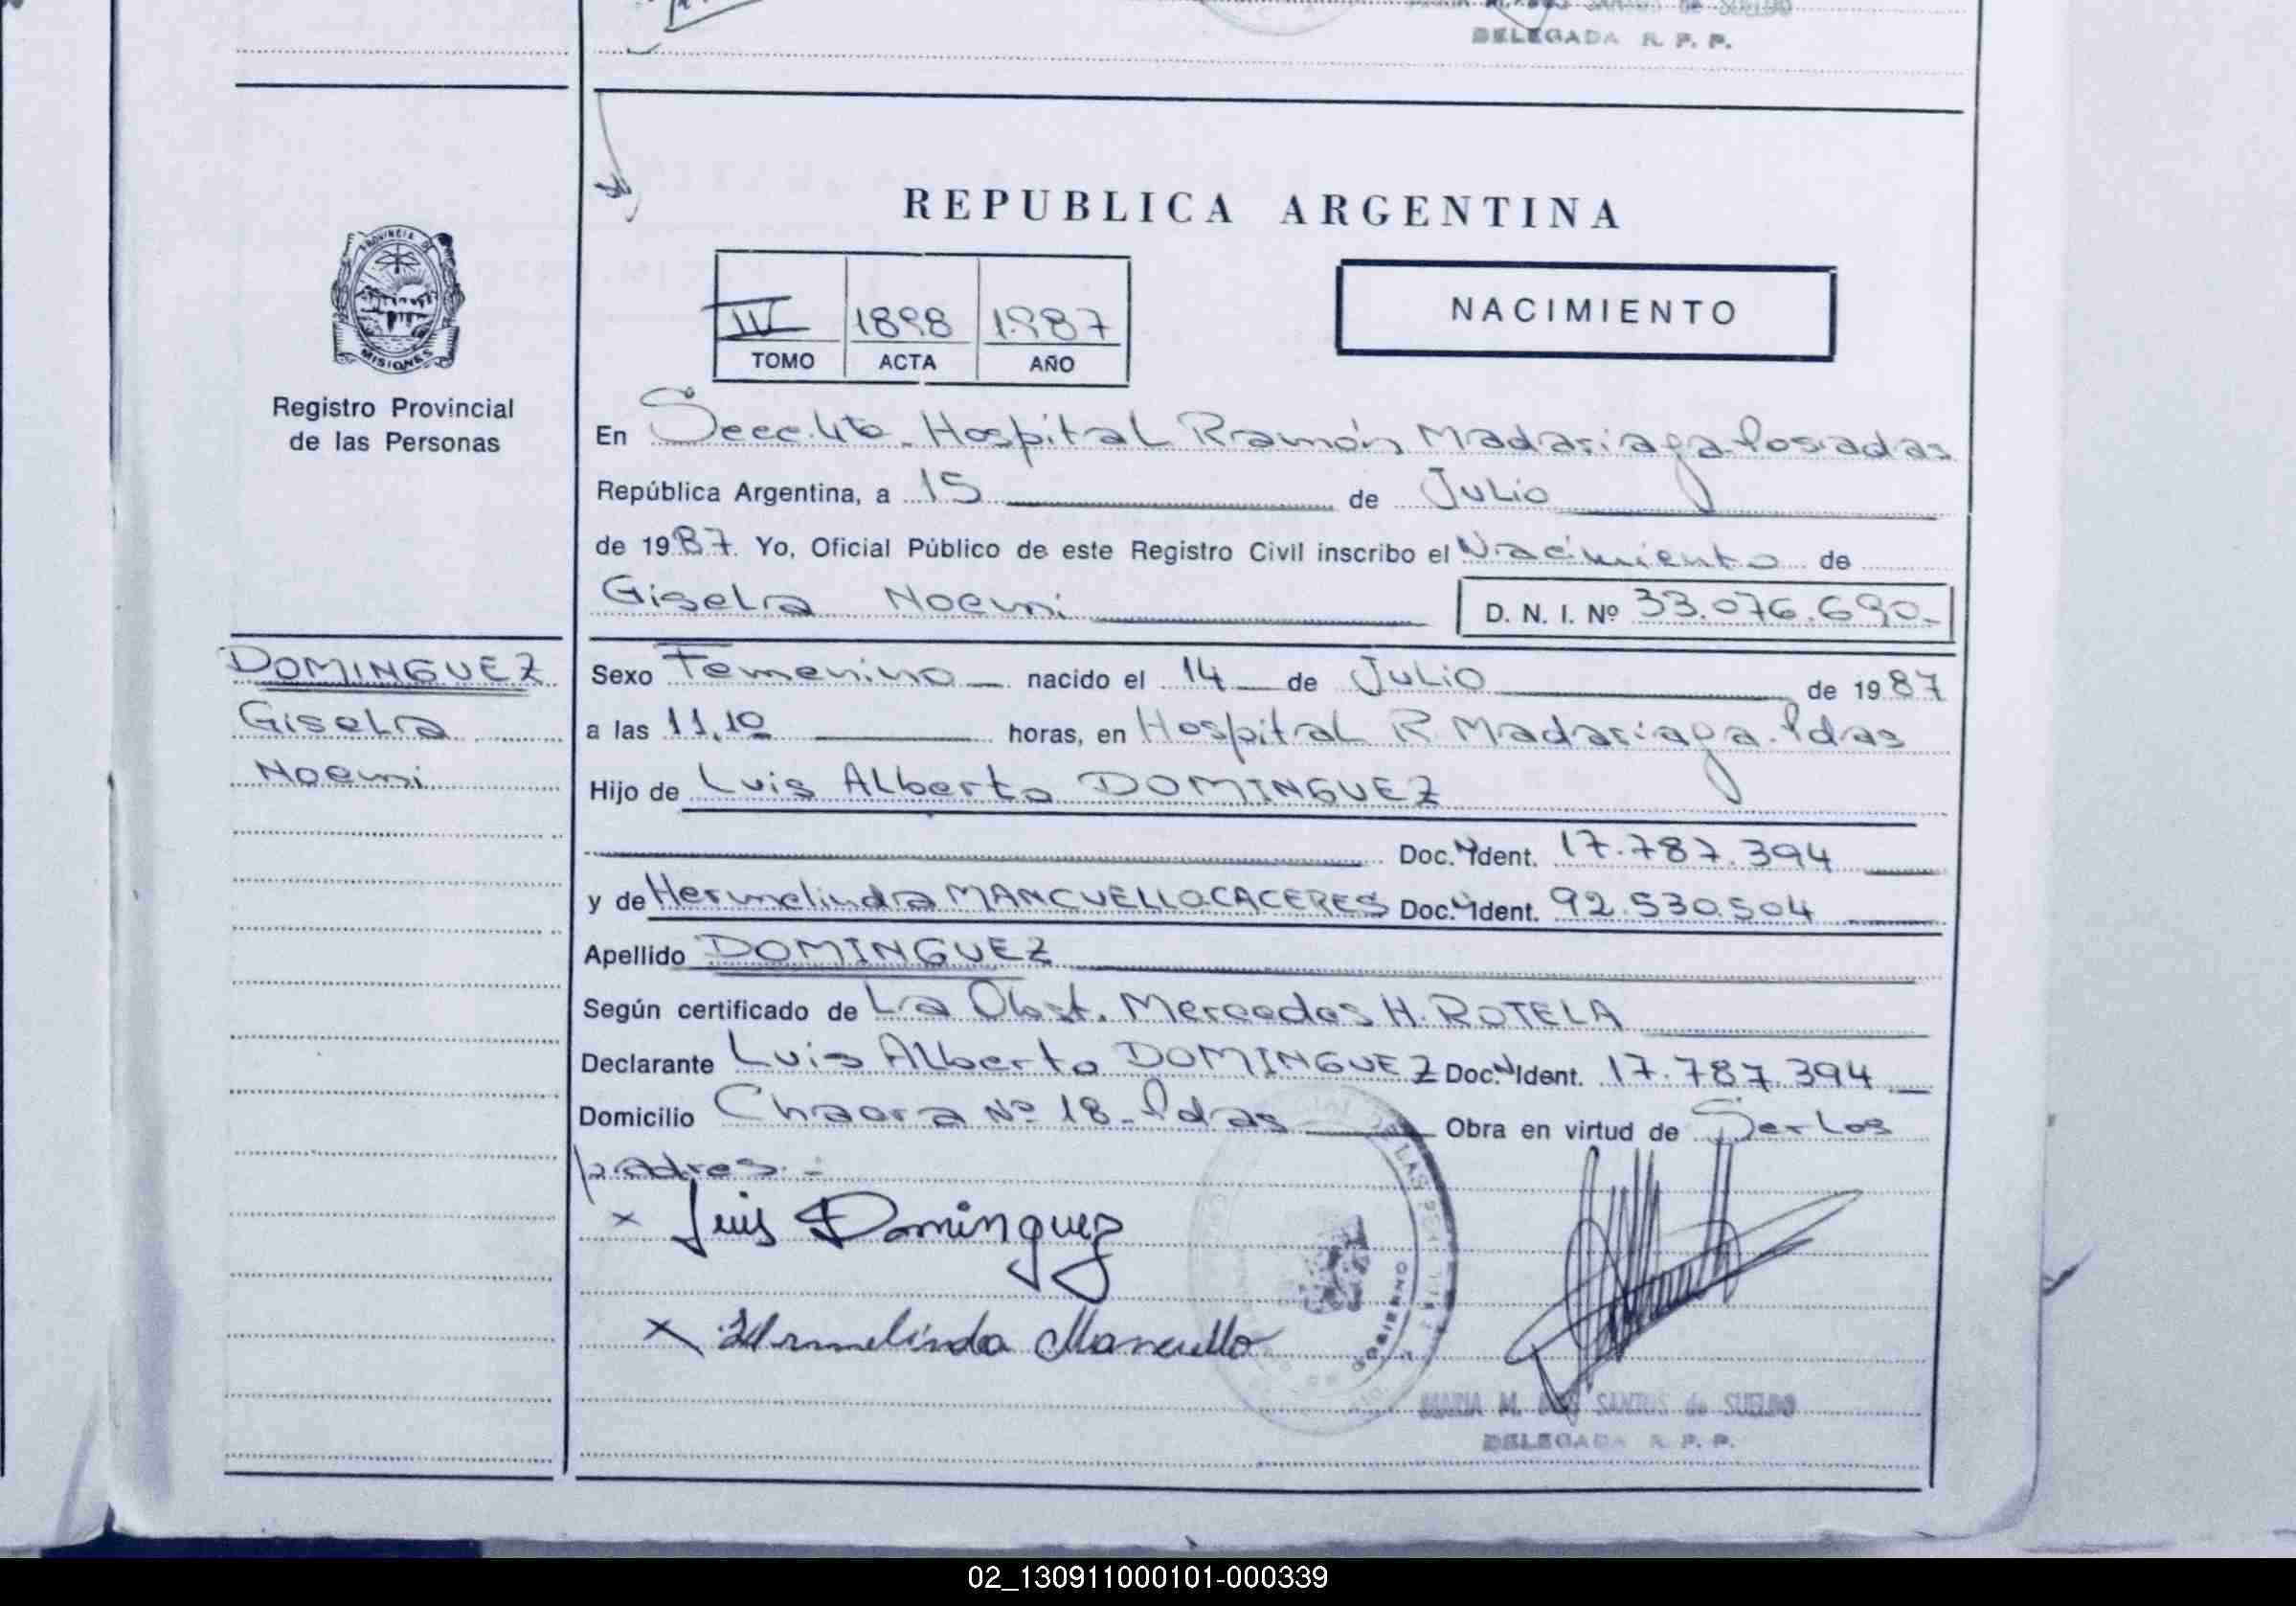 DELEGADA R. P. P.
REPUBLICA ARGENTINA
PROVINCIA DE
MISIONES
Registro Provincial
de las Personas
NACIMIENTO
III 1898 1987
TOMO ACTA AÑO
En Secc. 4to. Hospital Ramón Madariaga Posadas
República Argentina, a 15 de Julio
de 1987. Yo, Oficial Público de este Registro Civil inscribo el Nacimiento de
Gisela Noemi D. N. I. Nº 33.076.690.-
DOMINGUEZ
Gisela
Noemi
Sexo Femenino nacido el 14 de Julio de 1987
a las 11,10 horas, en Hospital R Madariaga. Pdas
Hijo de Luis Alberto DOMINGUEZ
Doc. Ident. 17.787.394
y de Hermelinda MANCUELLO CACERES Doc. Ident. 92.530.504
Apellido DOMINGUEZ
Según certificado de La Obst. Mercedes H. ROTELA
Declarante Luis Alberto DOMINGUEZ Doc. Ident. 17.787.394
Domicilio Chacra Nº 18 - Pdas Obra en virtud de Ser Los
padres.-
x Luis Dominguez
x Hermelinda Mancuello
MARIA M. DOS SANTOS de SUELDO
DELEGADA R. P. P.
02_130911000101-000339